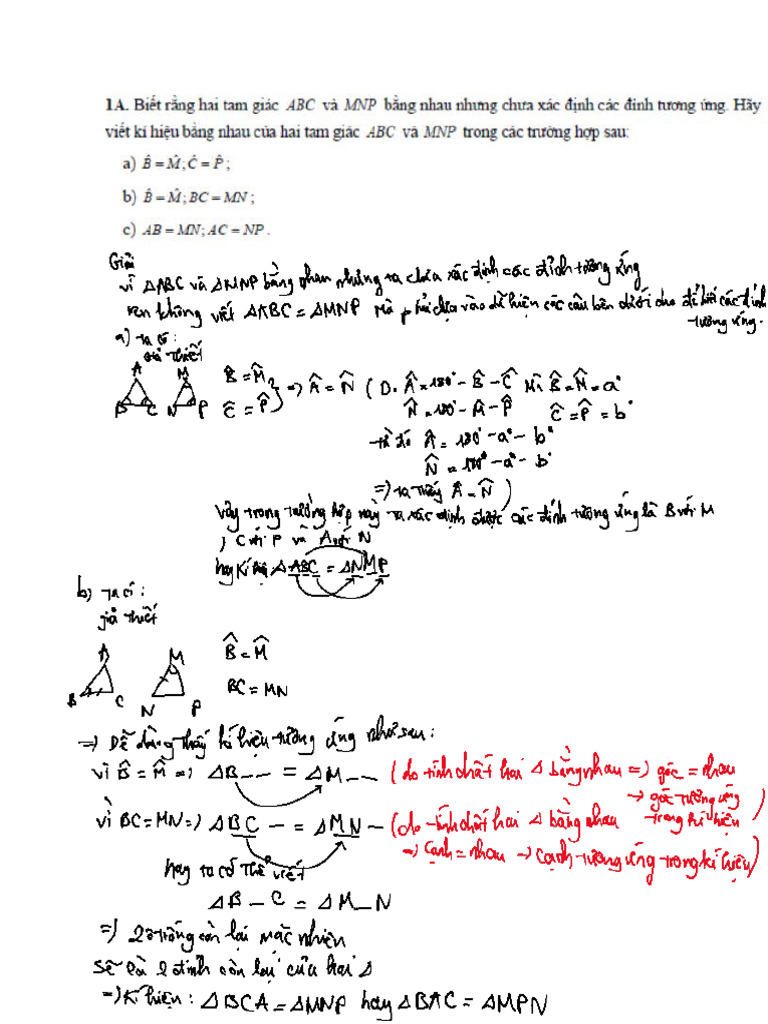 1A. Biết rằng hai tam giác ABC và MNP bằng nhau nhưng chưa xác định các đỉnh tương ứng. Hãy
viết kí hiệu bằng nhau của hai tam giác ABC và MNP trong các trường hợp sau:
a) B̂ = M̂; Ĉ = P̂;
b) B̂ = M̂; BC = MN;
c) AB = MN; AC = NP.
Giải
Vì ΔABC và ΔMNP bằng nhau nhưng ta chưa xác định các đỉnh tương ứng
nên không viết ΔABC = ΔMNP Mà phải dựa vào dữ kiện các câu bên dưới cho để biết các đỉnh
tương ứng.
a) ta có:
Giả thiết
A M
B C N P
B̂ = M̂
Ĉ = P̂
=> Â = N̂ ( Do Â = 180° - B̂ - Ĉ Mà B̂ = M̂ = a°
N̂ = 180° - M̂ - P̂ Ĉ = P̂ = b°
từ đó Â = 180° - a° - b°
N̂ = 180° - a° - b°
=> ta thấy Â = N̂ )
Vậy trong trường hợp này ta xác định được các đỉnh tương ứng là B với M
, C với P và A với N
hay kí hiệu ΔABC = ΔNMP
b) Ta có:
giả thiết
A M
B C N P
B̂ = M̂
BC = MN
=> Dễ dàng thấy kí hiệu tương ứng như sau:
vì B̂ = M̂ => ΔB-- = ΔM-- (do tính chất hai Δ bằng nhau => góc = nhau
-> góc tương ứng
trong kí hiệu)
vì BC = MN => ΔBC- = ΔMN- (do tính chất hai Δ bằng nhau
=> cạnh = nhau -> cạnh tương ứng trong kí hiệu)
hay ta có thể viết
ΔB-C = ΔM-N
=> 2 ô trống còn lại mặc nhiên
sẽ là 2 đỉnh còn lại của hai Δ
=> Kí hiệu: ΔBCA = ΔMNP hay ΔBAC = ΔMPN